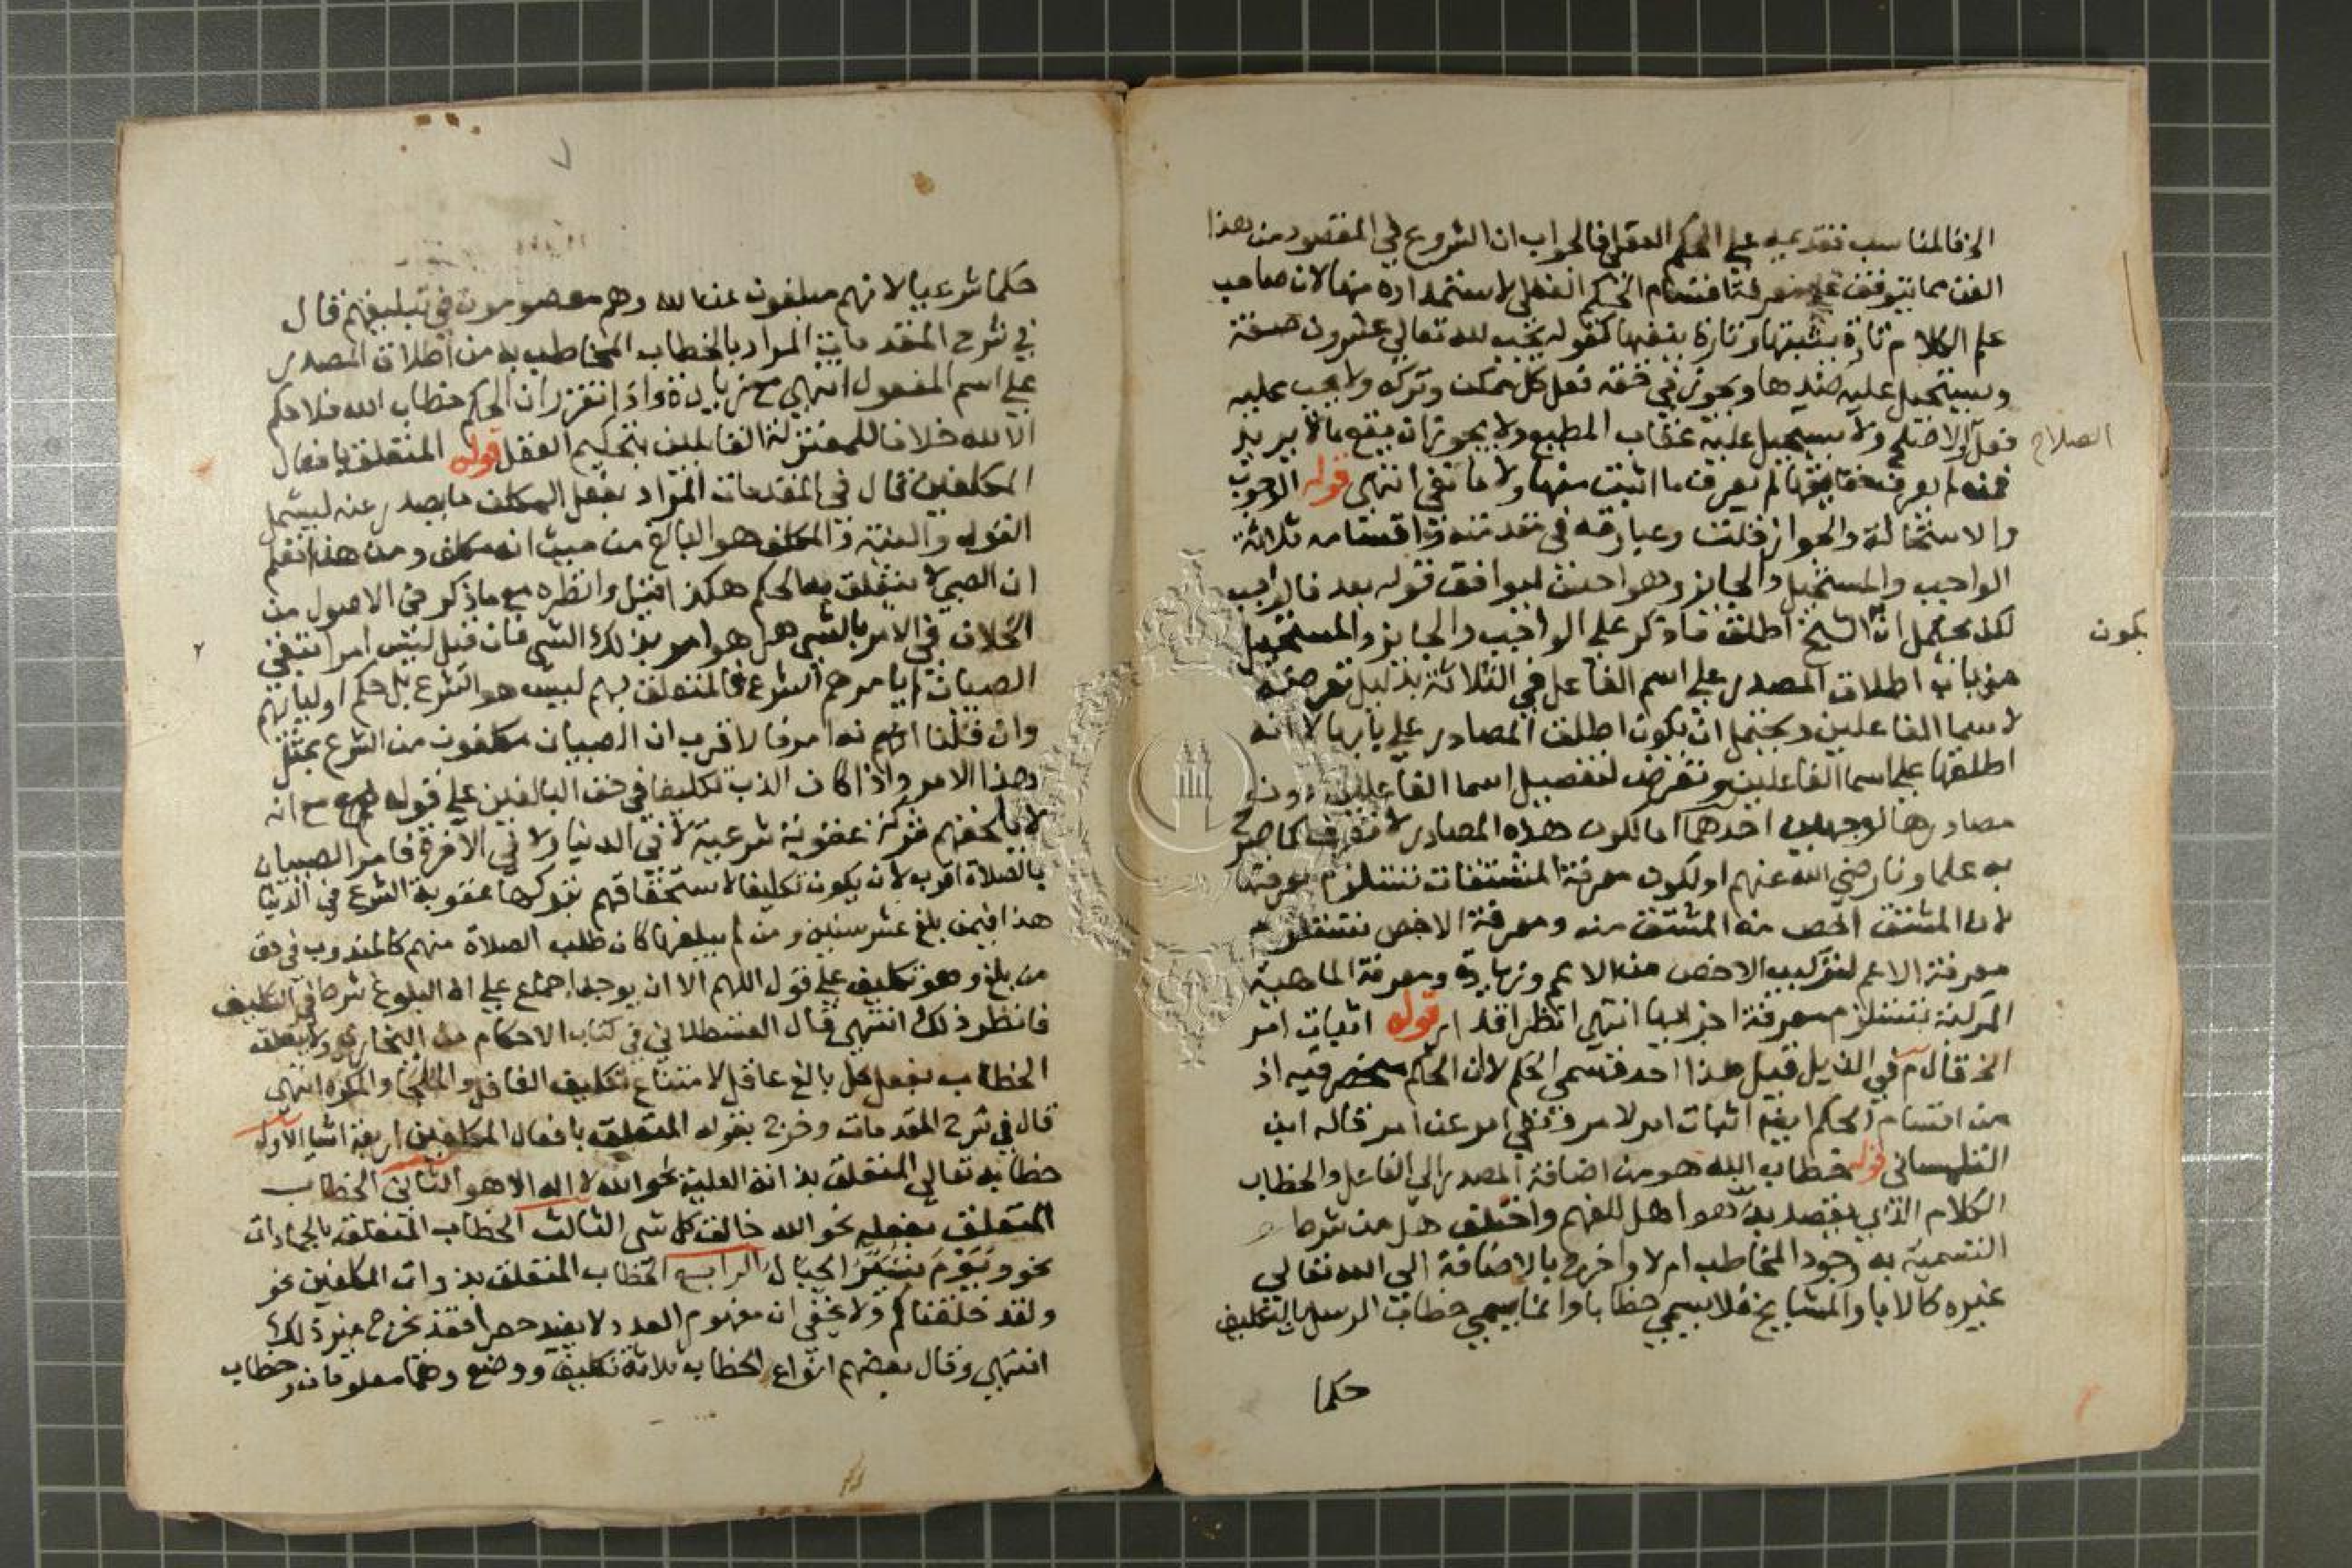 الخ فالمناسب تقديمه علي الحكم العقلي فالجواب ان الشروع في المقصود من هذا
الفن مما يتوقف علي معرفة اقسام الحكم العقلي لاستمداده منها لان صاحب
علم الكلام تارة يثبتها وتارة ينفيها كقوله يجب لله تعالي عشرون صفة
ويستحيل عليه ضدها ويجوز في حقه فعل كل ممكن وتركه ولا يجب عليه
فعل الاصلح ولا يستحيل عليه عقاب المطيع ولا يجوز ان يقع ما لا يريد
الصلاح
فمن لم يعرف حقايقها لم يعرف ما اثبت منها ولا ما نفي انتهي قوله الوجوب
والاستحالة والجواز قلت وعبارته في مقدمته واقسامه ثلاثة
الواجب والمستحيل والجايز وهو احسن ليوافق قوله بعد فالواجب
لكن يحتمل ان الشيخ اطلق ما ذكر علي الواجب والجايز والمستحيل
يكون
من باب اطلاق المصدر علي اسم الفاعل في الثلاثة بدليل تعرضه
لاسما الفاعلين ويحتمل ان يكون اطلق المصادر علي بابها لا انه
اطلقها علي اسما الفاعلين وتعرض لتفصيل اسما الفاعلين دون
مصادرها لوجهين احدهما اما لكون هذه المصادر لا تعرف كما صرح
به علماونا رضي الله عنهم او لكون معرفة المشتقات تستلزم معرفتها
لان المشتق اخص من المشتق منه ومعرفة الاخص تستلزم
معرفة الاعم لتركيب الاخص من الاعم وزيادة ومعرفة الماهية
المركبة تستلزم معرفة اجزايها انتهي انظر اقدار قوله اثبات امر
الخ قال م في الذيل قبل هذا احد قسمي الحكم لان الحكم منحصر فيه اذ
من اقسام الحكم ايضا اثبات امر لامر ونفي امر عن امر قاله ابن
التلمساني قوله خطاب الله هو من اضافة المصدر الي الفاعل والخطاب
الكلام الذي يقصد به من هو اهل للفهم واختلف هل من شرط
التسمية به وجود المخاطب ام لا واخرج بالاضافة الي الله تعالي
غيره كالابا والمشايخ فلا يسمي خطابا وانما يسمي خطاب الرسل بالتكليف
حكما
حكما شرعيا لانهم مبلغون عن الله وهم معصومون في تبليغهم قال
في شرح المقدمات المراد بالخطاب المخاطب به من اطلاق المصدر
علي اسم المفعول انتهي مع زيادة واذا تقرر ان الحكم خطاب الله فلا حكم
الا لله خلافا للمعتزلة القايلين بتحكيم العقل قوله المتعلق بافعال
المكلفين قال في المقدمات المراد بفعل المكلف ما يصدر عنه ليشمل
القول والنية والمكلف هو البالغ من حيث انه مكلف ومن هذا تعلم
ان الصبي لا يتعلق به الحكم هكذا قيل وانظره مع ما ذكر في الاصول من
الخلاف في الامر بالشي هل هو امر بذلك الشي فان قيل ليس امرا بقي
الصبيان لم يامرهم الشرع فالمتعلق بهم ليس هو الشرع بل حكم اوليايهم
وان قلنا انهم امر فالاقرب ان الصبيان مكلفون من الشرع بمثل
هذا الامر واذا كان الندب تكليفا في حق البالغين علي قوله مع انه
لا يلحقهم بتركه عقوبة شرعية لا في الدنيا ولا في الاخرة فامر الصبيان
بالصلاة اقرب لان يكون تكليفا لاستحقاقهم بتركها عقوبة الشرع في الدنيا
هذا فيمن بلغ عشر سنين ومن لم يبلغها كان طلب الصلاة منهم كالمندوب في حق
من بلغ وهو تكليف علي قول اللهم الا ان يوجد اجماع علي ان البلوغ شرط في التكليف
فانظر ذلك انتهي قال القسطلاني في كتاب الاحكام من البخاري ولا يتعلق
الخطاب بفعل كل بالغ عاقل لامتناع تكليف الغافل والملجا والمكره انتهي
قال في شرح المقدمات وخرج بقوله المتعلق بافعال المكلفين اربعة اشيا الاول
خطابه تعالي المتعلق بذاته العلية نحو الله لا اله الا هو الثاني الخطاب
المتعلق بفعله نحو الله خالق كل شي الثالث الخطاب المتعلق بالجمادات
نحو ويوم نسير الجبال الرابع الخطاب المتعلق بذوات المكلفين نحو
ولقد خلقناكم ولا يخفي ان مفهوم العدد لا يفيد حصرا فقد يخرج غير ذلك
انتهي وقال بعضهم انواع الخطاب ثلاثة تكليف ووضع وهما معلومان وخطاب